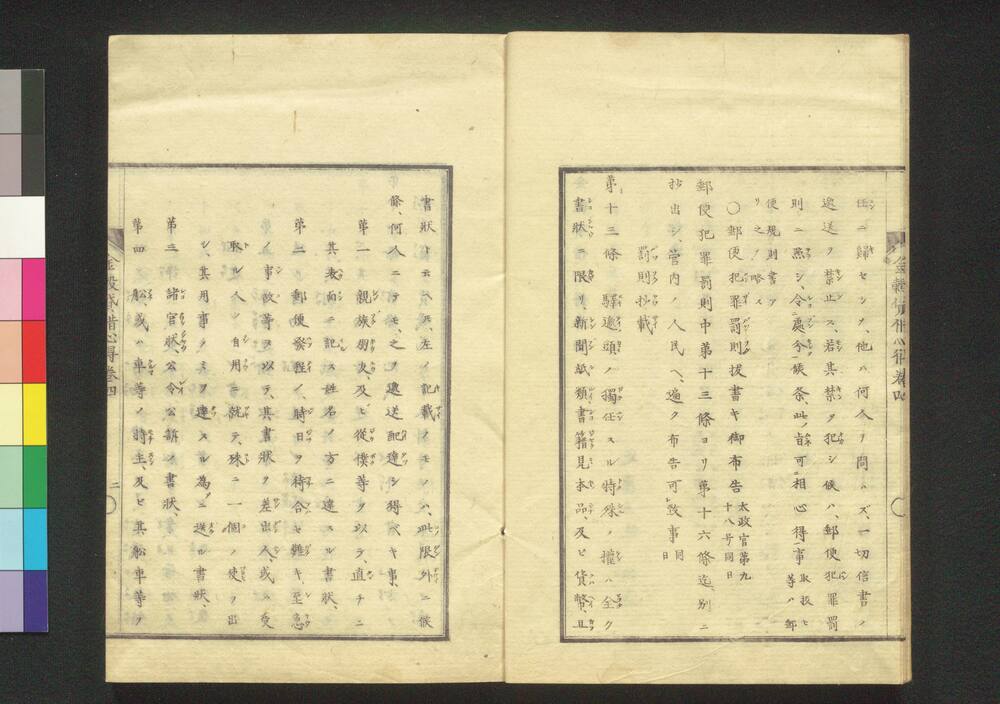 任ニ歸セシメ、他ハ何人ヲ問ハズ一切信書ノ
遞送ヲ禁止ス、若其禁ヲ犯シ候ハヾ、郵便犯罪罰
則ニ照シ、令處分候条、此ノ旨可相心得事 取扱ヒ等ハ郵
便規則書アリ之ヲ略ス
〇郵便犯罪罰則拔書キ御布告 太政官第九十八号同日
郵便犯罪罰則中第十三條ヨリ第十六條迄、別ニ
抄出シ、管内ノ人民ヘ、遍ク布告可致事 同日
罰則抄載
第十三條 驛遞頭ノ獨任スル特殊ノ權ハ全ク
書狀ニ限リ、新聞紙類書籍見本品、及ヒ貨幣、且
書狀ト云トモ、左ノ記載ノモノハ、此限外ニ候
條、何人ニテモ、之ヲ遞送配達シ得ベキ事、
第一 親族朋友、及ビ從僕等ヲ以テ、直チニ
其表面ニ記ス姓名ノ方ニ達スル書狀、
第二 郵便發程ノ時日ヲ待合セ難キ、至急
ノ事故等ヲ以テ、其書狀ヲ差出人、或ハ受
取ル人ノ自用ニ就テ、殊ニ一個ノ使ヲ出
シ、其用事ノミヲ達スル為ニ送ル書狀、
第三 諸官狀、公令公訴ノ書狀、
第四 舩、或ハ車等ノ持主、及ヒ其舩車等ノ